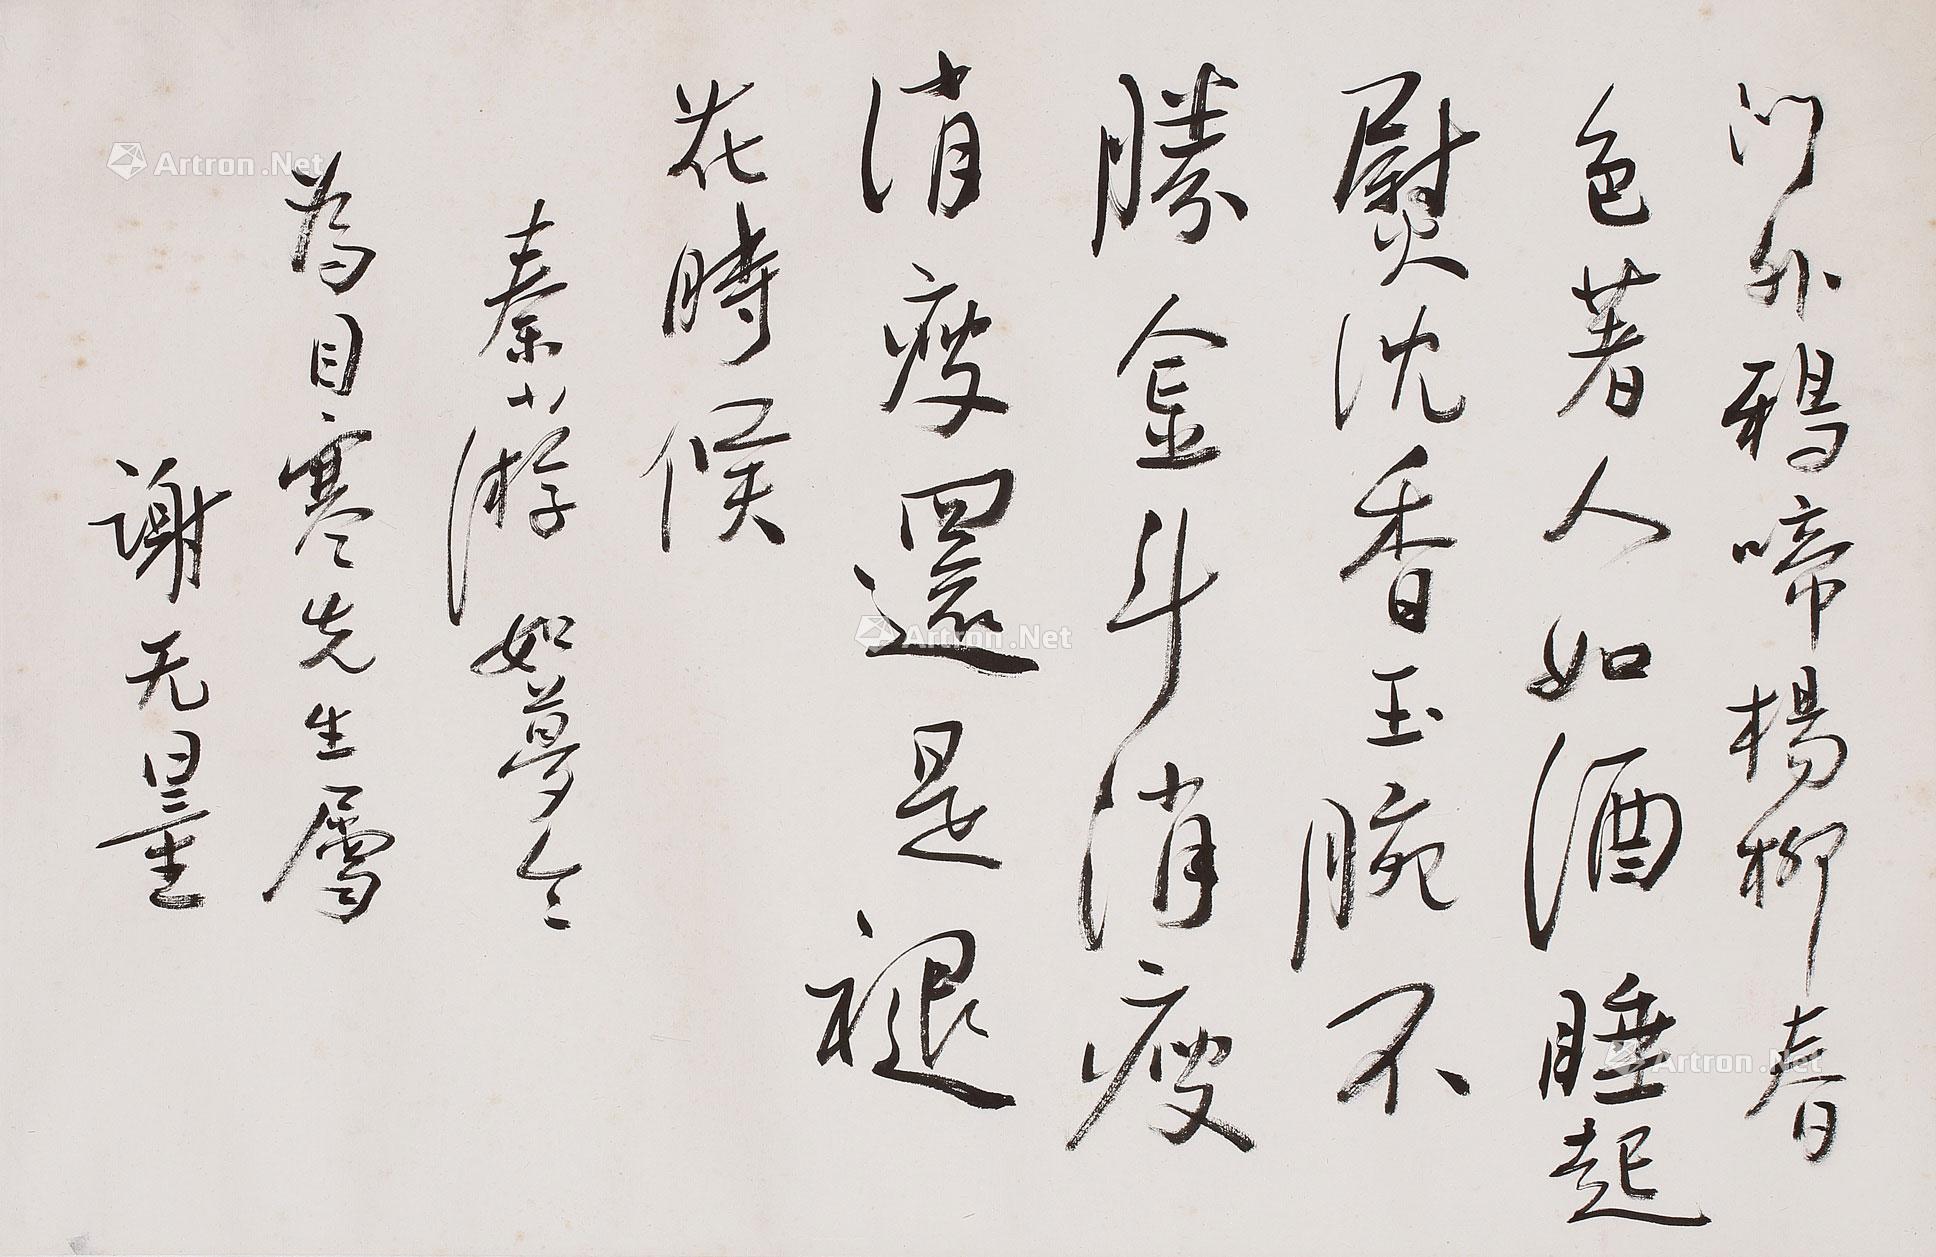 门外鴉啼楊柳春
色著人如酒睡起
熨沈香玉腕不
勝金斗消瘦
消瘦還是褪
花時候
秦少游如夢令
為目寒先生屬
謝无量
Artron.Net
Artron.Net
Artron.Net